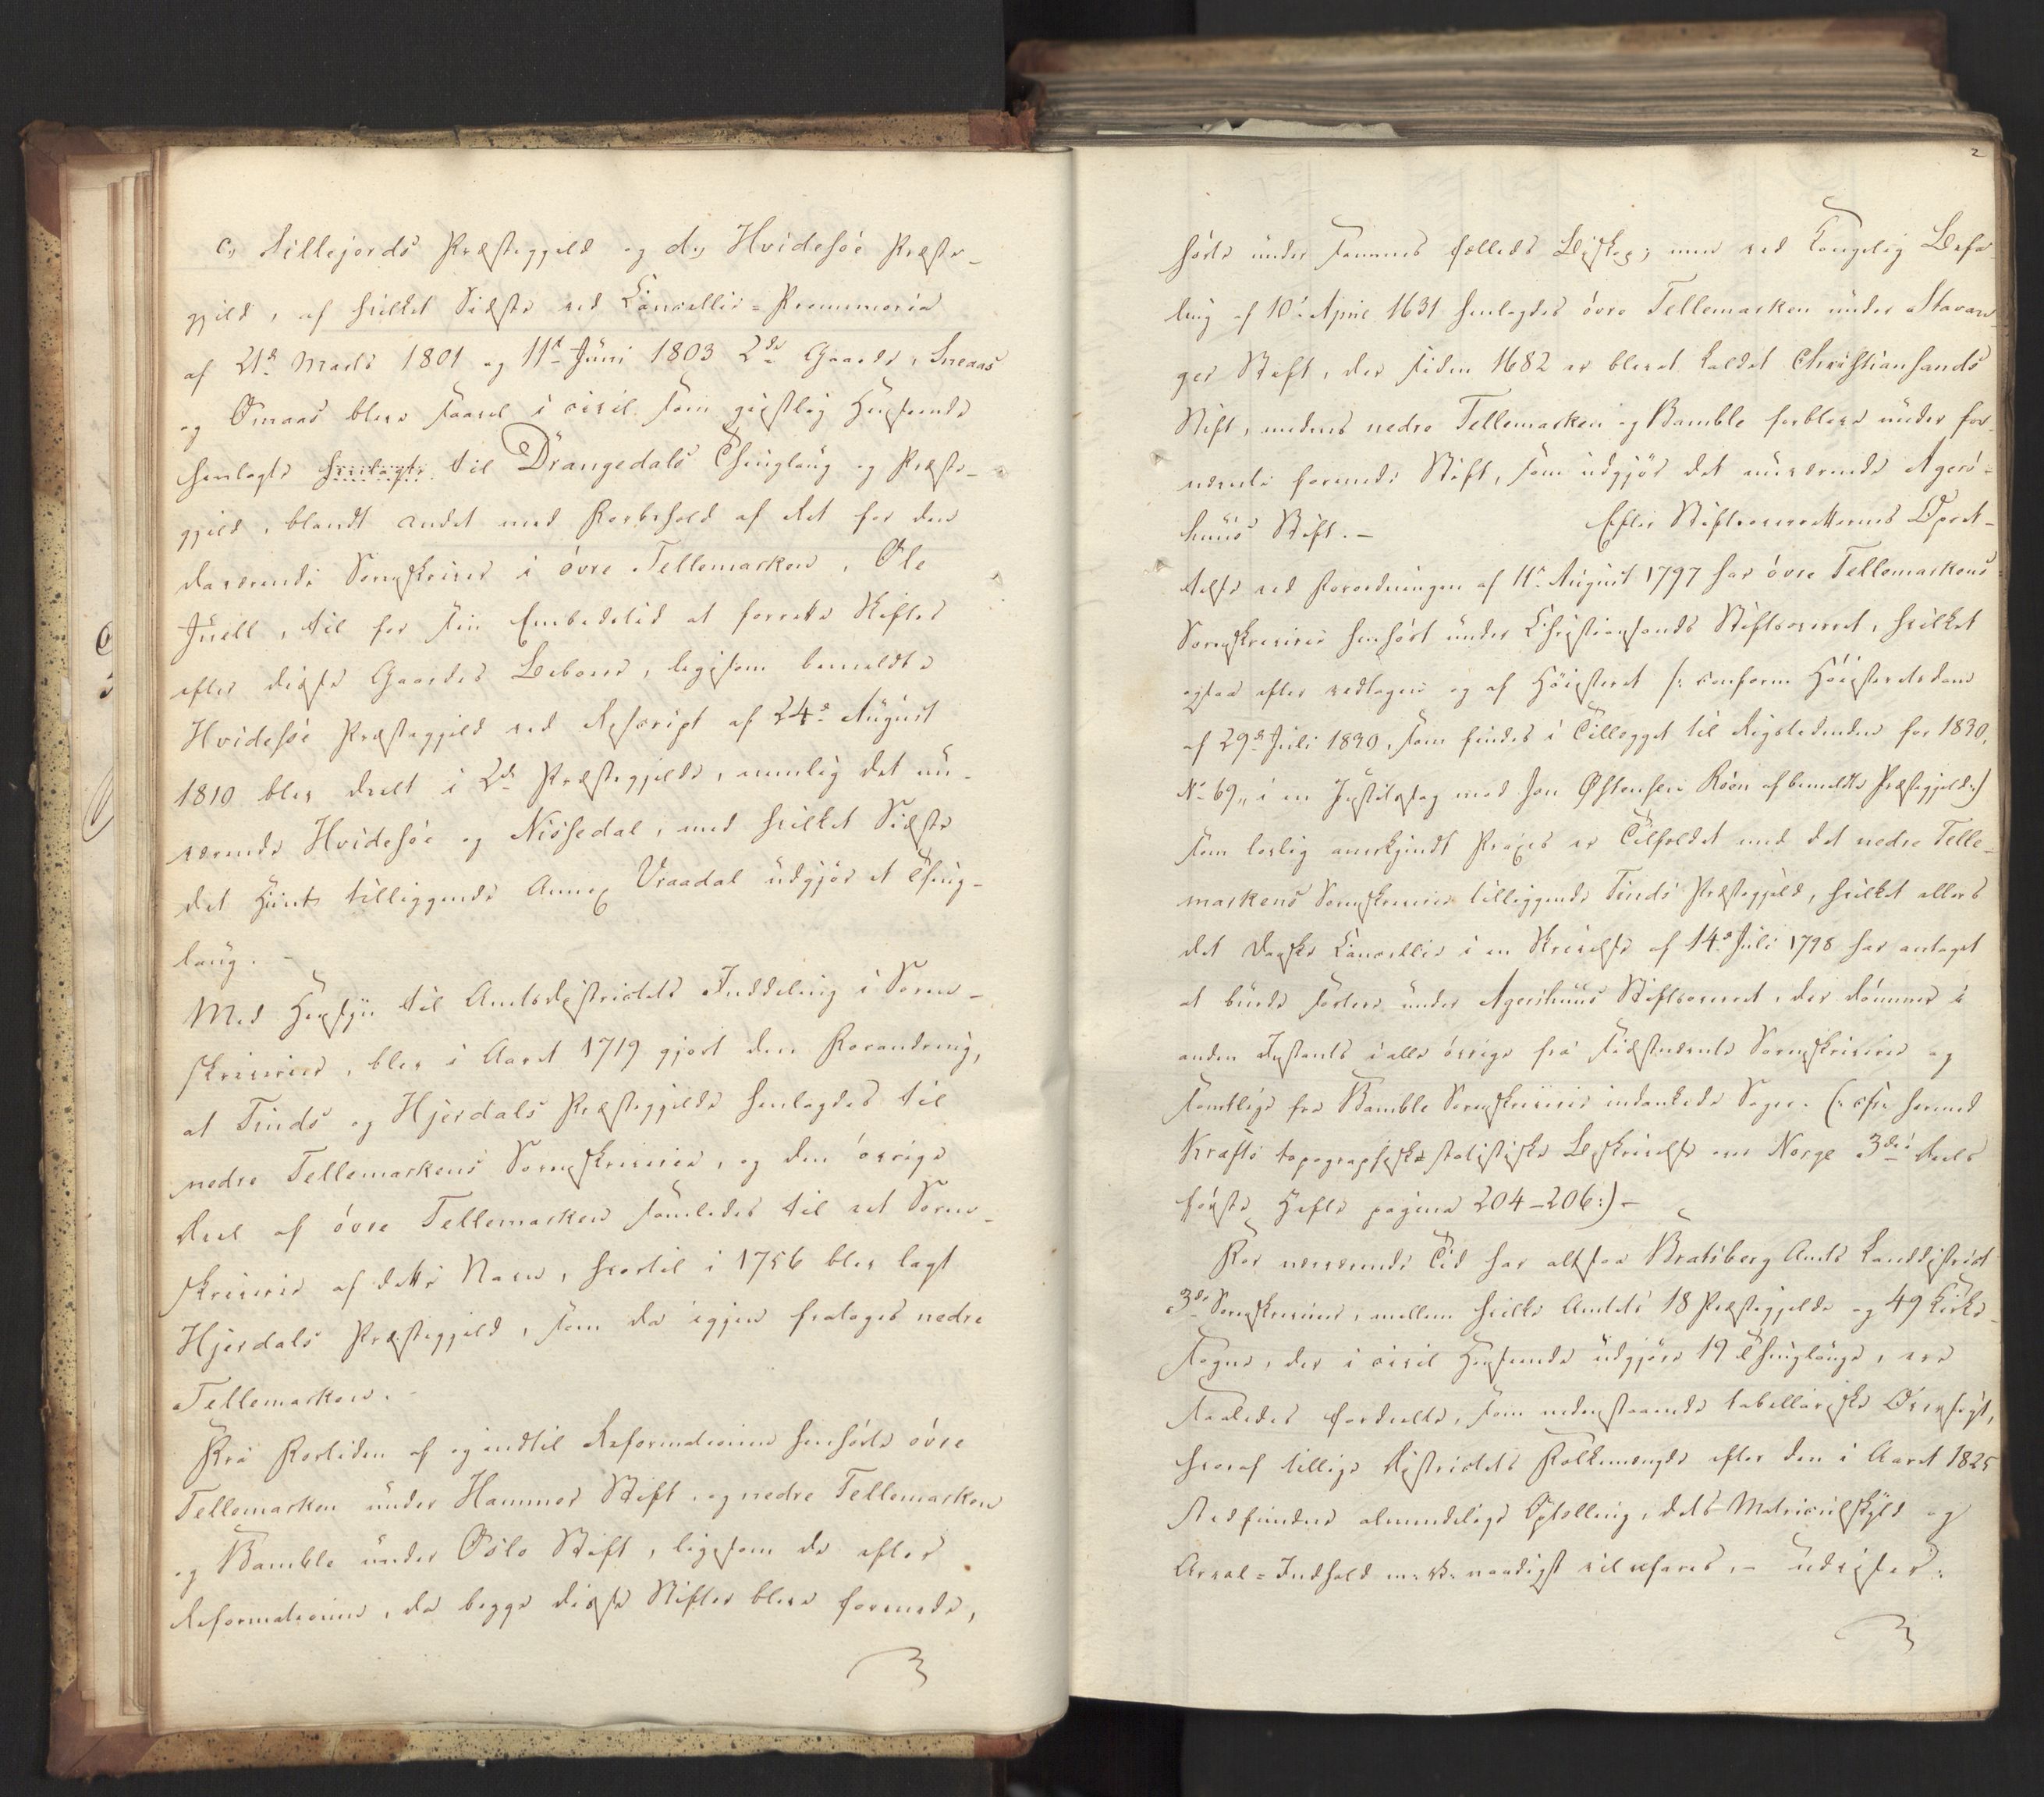 c, Sillejords Præstegjeld og d., Hvidesøe Præste-
gjeld, af hvilket Sidste ved Cancellie-Promemoria
af 21d Marts 1801 og 11te Juni 1803 2de Gaarde, Sneaas
og Omaas bleve saavel i civil som geistlig Henseende
henlagte henlagte til Drangedals Thinglaug og Præste-
gjeld, blandt andet med Forbehold af Ret for den
daværende Sorenskriver i øvre Tellemarken, Ole
Juell, til for sin Embedstid at forrette Skifter
efter disse Gaardes Beboere, ligesom bemeldte
Hvidesøe Præstegjeld ved Rescript af 24d August
1810 blev deelt i 2de Præstegjelde, nemlig det nu-
værende Hvidesøe og Nissedal, med hvilket Sidste
det hiint tilliggende Annex Vraadal udgjør et Thing-
laug. -
Med Hensyn til Amtsdistrictets Inddeling i Soren-
skriverier, blev i Aaret 1719 gjort den Forandring,
at Tinds og Hjerdals Præstegjelde henlagdes til
nedre Tellemarkens Sorenskriverie, og den øvrige
Deel af øvre Tellemarken samledes til eet Soren-
skriverie af dette Navn, hvortil i 1756 blev lagt
Hjerdals Præstegjeld, som da igjen fratoges nedre
Tellemarken. -
Fra Fortiden af og indtil Reformationen henhørte øvre
Tellemarken under Hammer Stift, og nedre Tellemarken
og Bamble under Oslo Stift, ligesom de efter
Reformationen, da begge disse Stifter bleve forenede,
2
hørte under sammes fælleds Biskop; men ved Kongelig Befa-
ling af 10de April 1631 henlagdes øvre Tellemarken under Stavan-
ger Stift, der siden 1682 er blevet kaldet Christiansands
Stift, medens nedre Tellemarken og Bamble forbleve under for-
nævnte forenede Stift, som udgjør det nuværende Agers-
huus Stift. - Efter Stiftsoverretternes Opret-
telse ved Forordningen af 11te August 1797 har øvre Tellemarkens
Sorenskriverie henhørt under Christiansands Stiftsoverret, hvilket
ogsaa efter vedtagen og af Høiesteret /: conform Høiesteretsdom
af 29d Juli 1830, som findes i Tillægget til Rigstidenden for 1830,
No 69, i en Justitssag mod Jon Østensen Roøn af bemeldte Præstegjeld:)
som lovlig anerkjendt Praxis er Tilfældet med det nedre Telle-
markens Sorenskriverie tilliggende Tinds Præstegjeld, hvilket ellers
det danske Cancellie i en Skrivelse af 14d Juli 1798 har antaget
at burde sortere under Agershuus Stiftsoverret, der dømmer i
anden Instants i alle øvrige fra sidstnævnte Sorenskriverie og
samtlige fra Bamble Sorenskriverie indankede Sager. (: cfr. hermed
Krafts topographisk-statistiske Beskrivelse over Norge 3die Deels
første Hefte pagina 204-206:) -
For nærværende Tid har altsaa Bratsberg Amts Landdistrict
3de Sorenskriverier, mellem hvilke Amtets 18 Præstegjelde og 49 Kirke-
sogne, der i civil Henseende udgjøre 19 Thinglauge, ere
saaledes fordeelte, som nedenstaaende tabellariske Oversigt,
hvoraf tillige Districtets Folkemængde efter den i Aaret 1825
stedfundne almindelige Optælling, dets Matriculskyld og
Areal-Indhold naadigst vil erfares, - udviser: